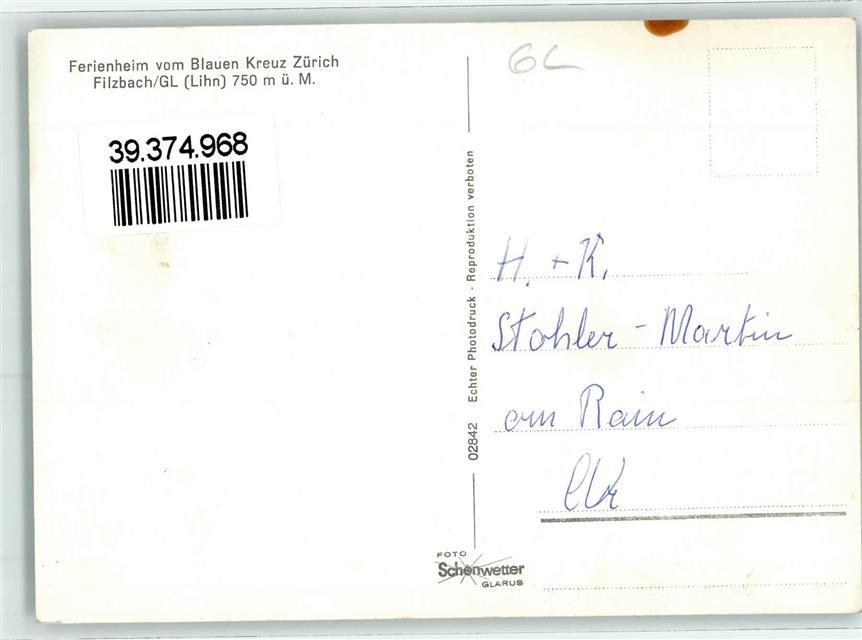 Ferienheim vom Blauen Kreuz Zürich
Filzbach/GL (Lihn) 750 m ü. M.
39.374.968
GL
Echter Photodruck · Reproduktion verboten
02842
H. + K.
Stohler - Martin
am Rain
FOTO
Schönwetter
GLARUS